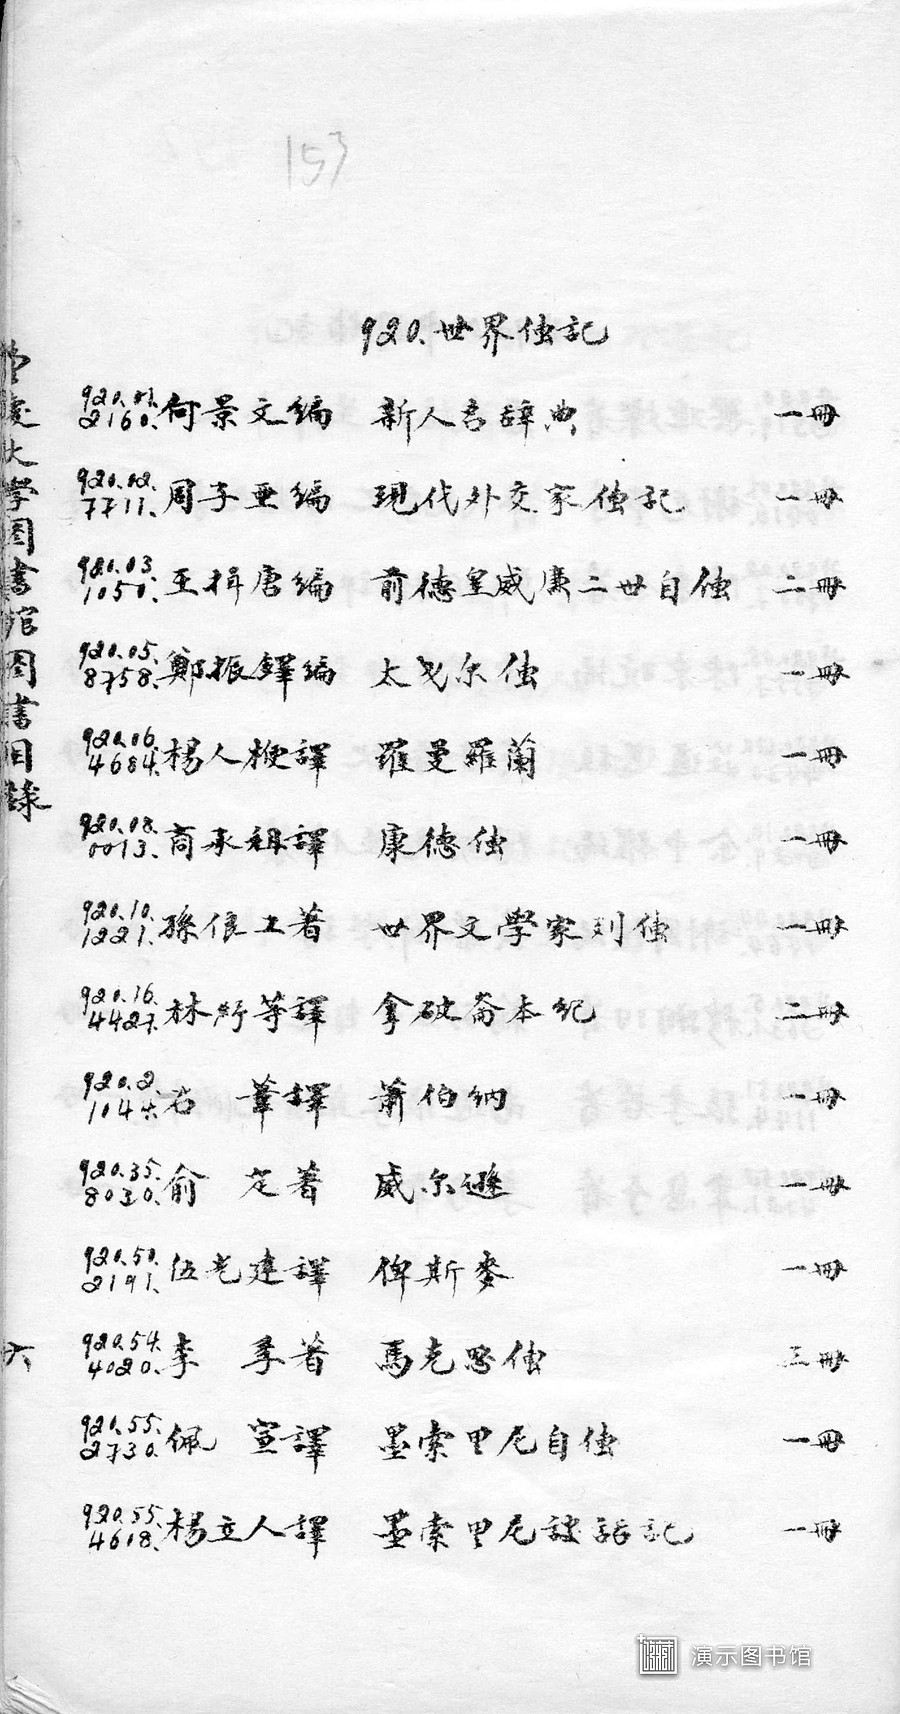 153
920.世界傳記
920.01. 2160. 何景文編 新人名辞典 一冊
920.02. 7711. 周子亜編 現代外交家傳記 一冊
920.03. 1050. 王揖唐編 前德皇威廉二世自傳 二冊
920.05. 8758. 鄭振鐸編 太戈尔傳 一冊
920.06. 4684. 楊人楩譯 羅曼羅蘭 一冊
920.08. 0013. 商承祖譯 康德傳 一冊
920.10. 1221. 孫俍工著 世界文學家列傳 一冊
920.16. 4427. 林紓等譯 拿破崙本紀 二冊
920.2 104 石 葦譯 蕭伯納 一冊
920.35. 8030. 俞 定著 威尔遜 一冊
920.50. 2191. 伍光建譯 俾斯麥 一冊
920.54. 4020. 李 季著 馬克思傳 三冊
920.55. 2730. 佩 萱譯 墨索里尼自傳 一冊
920.55. 4618. 楊立人譯 墨索里尼談話記 一冊
大學图書館图書目錄
六
演示图书馆